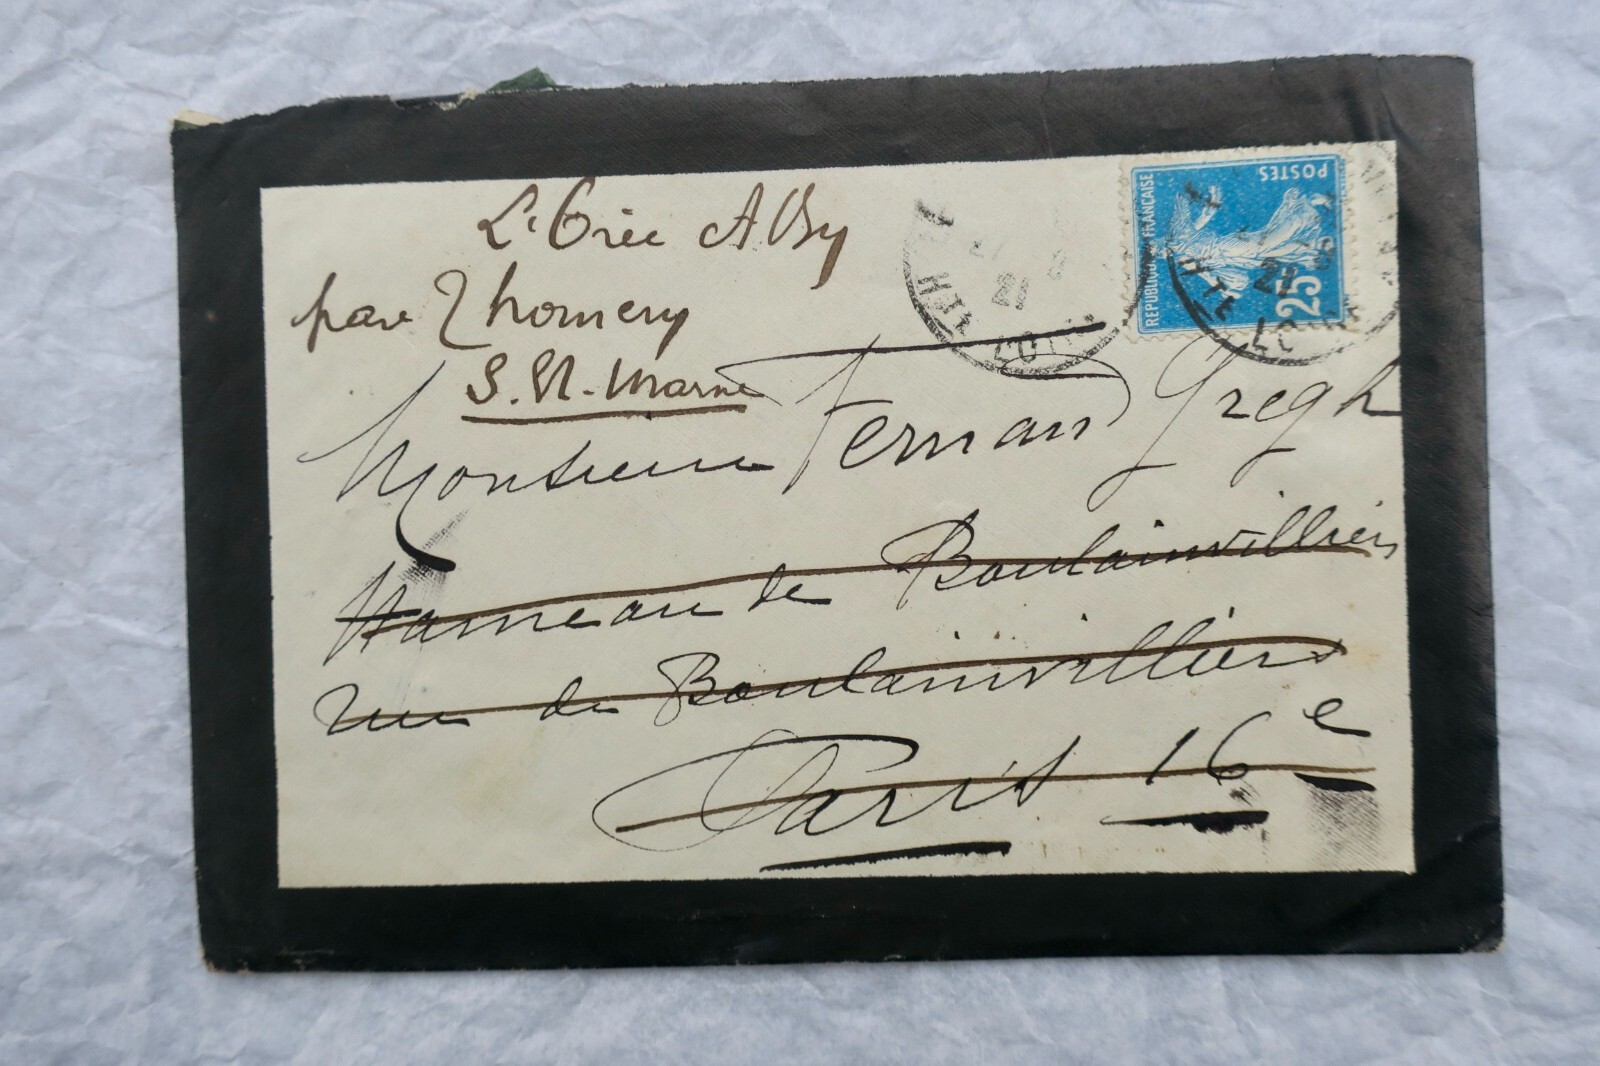 L'Orée A By
par Thomery
S. et. Marne
Monsieur Fernand Gregh
Hameau de Boulainvilliers
rue de Boulainvilliers
Paris 16e
REPUBLIQUE FRANÇAISE
POSTES
25
HTE LOIRE
21
HTE LOIRE
22